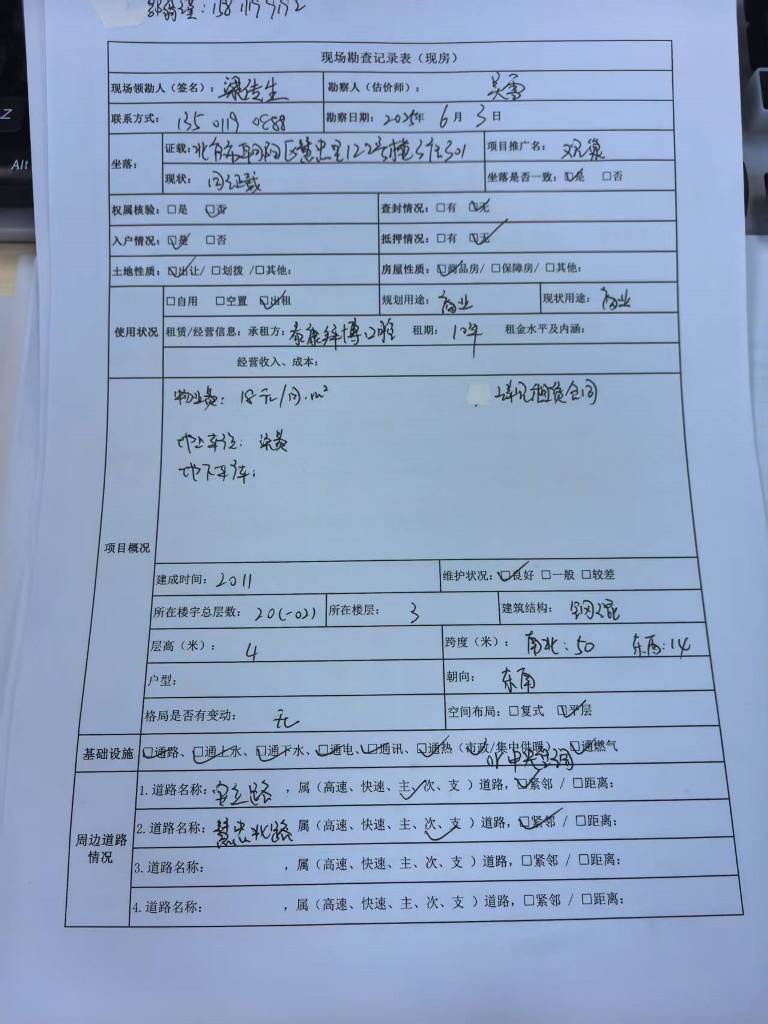 现场勘查记录表（现房）
现场领勘人（签名）： 梁传生 勘察人（估价师）： 吴雪
联系方式： 135 0119 0888 勘察日期： 2025年 6月 3日
坐落： 证载：北京市朝阳区慧忠里122号楼3层301 项目推广名：
现状： 同证载 坐落是否一致：☑是 □否
权属核验：□是 ☑否 查封情况：□有 ☑无
入户情况：☑是 □否 抵押情况：□有 ☑无
土地性质：☑出让/ □划拨 /□其他： 房屋性质：☑商品房/ □保障房/ □其他：
使用状况 □自用 □空置 ☑出租 规划用途： 商业 现状用途： 商业
租赁/经营信息：承租方：泰康拜博口腔 租期： 10年 租金水平及内涵：
经营收入、成本：
项目概况
物业费： 18元/月·m² 详见租赁合同
地上车位：
地下车库：
建成时间：2011 维护状况：☑良好 □一般 □较差
所在楼宇总层数：20(-02) 所在楼层： 3 建筑结构： 钢混
层高（米）： 4 跨度（米）： 南北：50 东西：14
户型： 朝向： 东南
格局是否有变动： 无 空间布局：□复式 ☑平层
基础设施 ☑通路、☑通上水、☑通下水、☑通电、☑通讯、☑通热（市政/集中供暖）、☑通燃气
中央空调
周边道路情况
1.道路名称：安立路 ，属（高速、快速、主✓、次、支 ）道路，☑紧邻 / □距离：
2.道路名称：慧忠北路 属（高速、快速、主、次✓、支 ）道路，☑紧邻 / □距离：
3.道路名称： ，属（高速、快速、主、次、支 ）道路，□紧邻 / □距离：
4.道路名称： ，属（高速、快速、主、次、支 ）道路，□紧邻 / □距离：